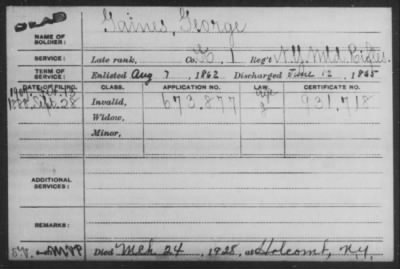 DEAD
Gaines, George
NAME OF SOLDIER:
SERVICE: Late rank, Co. 1 Reg't N.Y. Mtd. Rifles
TERM OF SERVICE: Enlisted Aug 7, 1862 Discharged June 12, 1865
DATE OF FILING. CLASS. APPLICATION NO. LAW. CERTIFICATE NO.
Sept. 28 Invalid, 673.877 931.718
Widow,
Minor,
ADDITIONAL SERVICES:
REMARKS:
Died Mch 24, 1928, at Holcomb, N.Y.